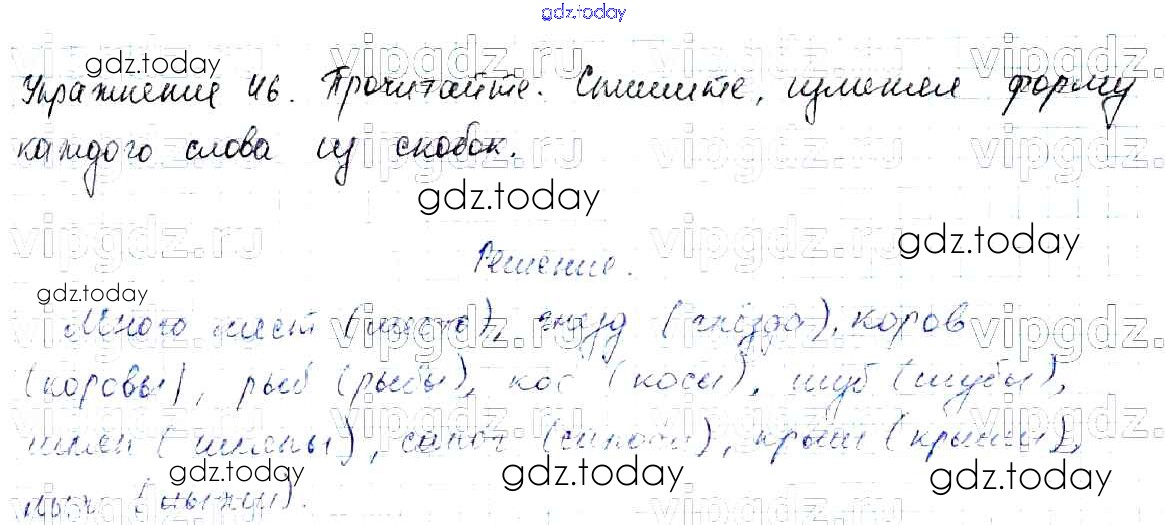 gdz.today
Упражнение 46. Прочитайте. Спишите, изменяя форму
каждого слова из скобок.
gdz.today
gdz.today
gdz.today
Решение.
gdz.today
Много мест (места), гнёзд (гнёзда), коров
(коровы), рыб (рыбы), кос (косы), шуб (шубы),
шляп (шляпы), сапог (сапоги), крыш (крыши),
лыж (лыжи).
gdz.today
gdz.today
gdz.today
vipgdz.ru